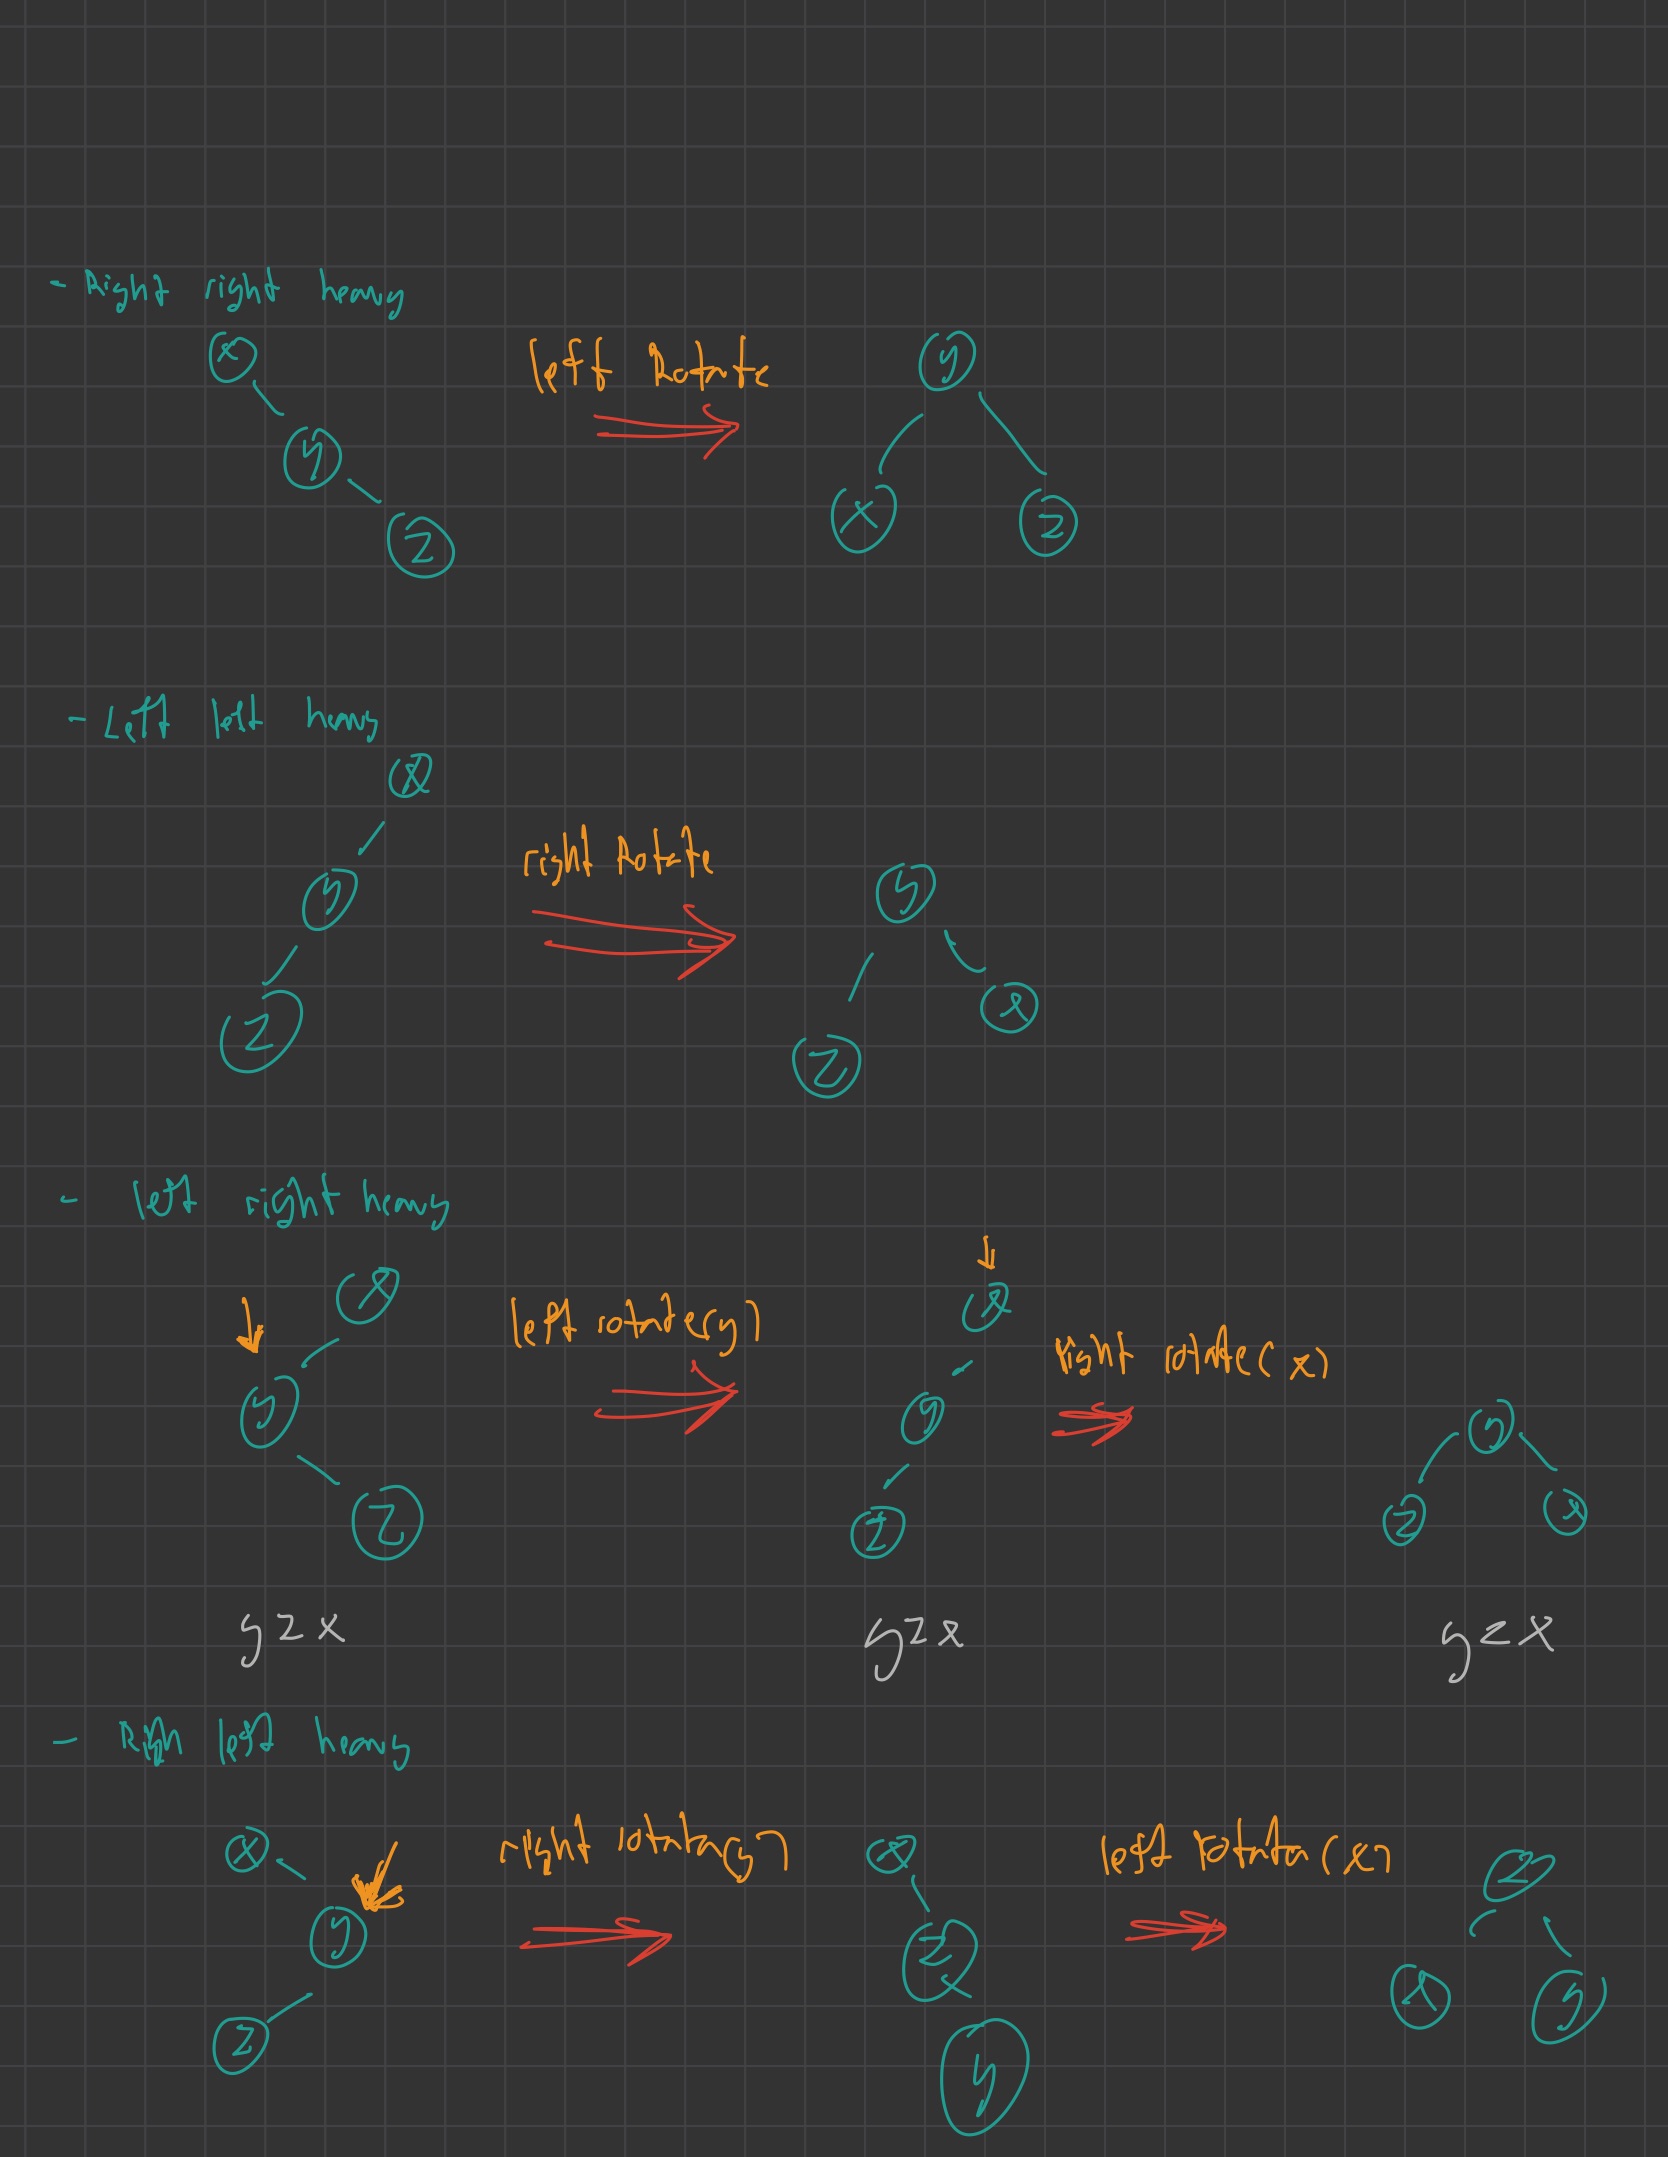 - Right right heavy
x
left Rotate
y
y
x
z
z
- Left left heavy
x
right Rotate
y
y
x
z
z
- left right heavy
x
x
left rotate(y)
right rotate(x)
y
y
y
z
z
z
x
y z x
y z x
y z x
- Righ left heavy
x
right rotate(y)
x
left rotate(x)
z
y
z
x
y
z
y